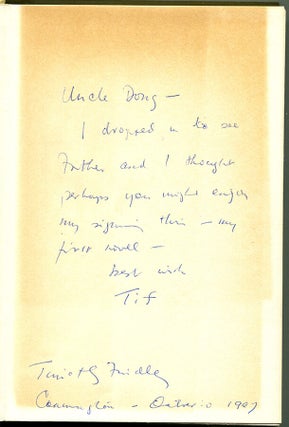 Uncle Doug —
I dropped in to see
Father and I thought
perhaps you might enjoy
my signing this — my
first novel —
best wish
Tif
Timothy Findley
Cannington — Ontario